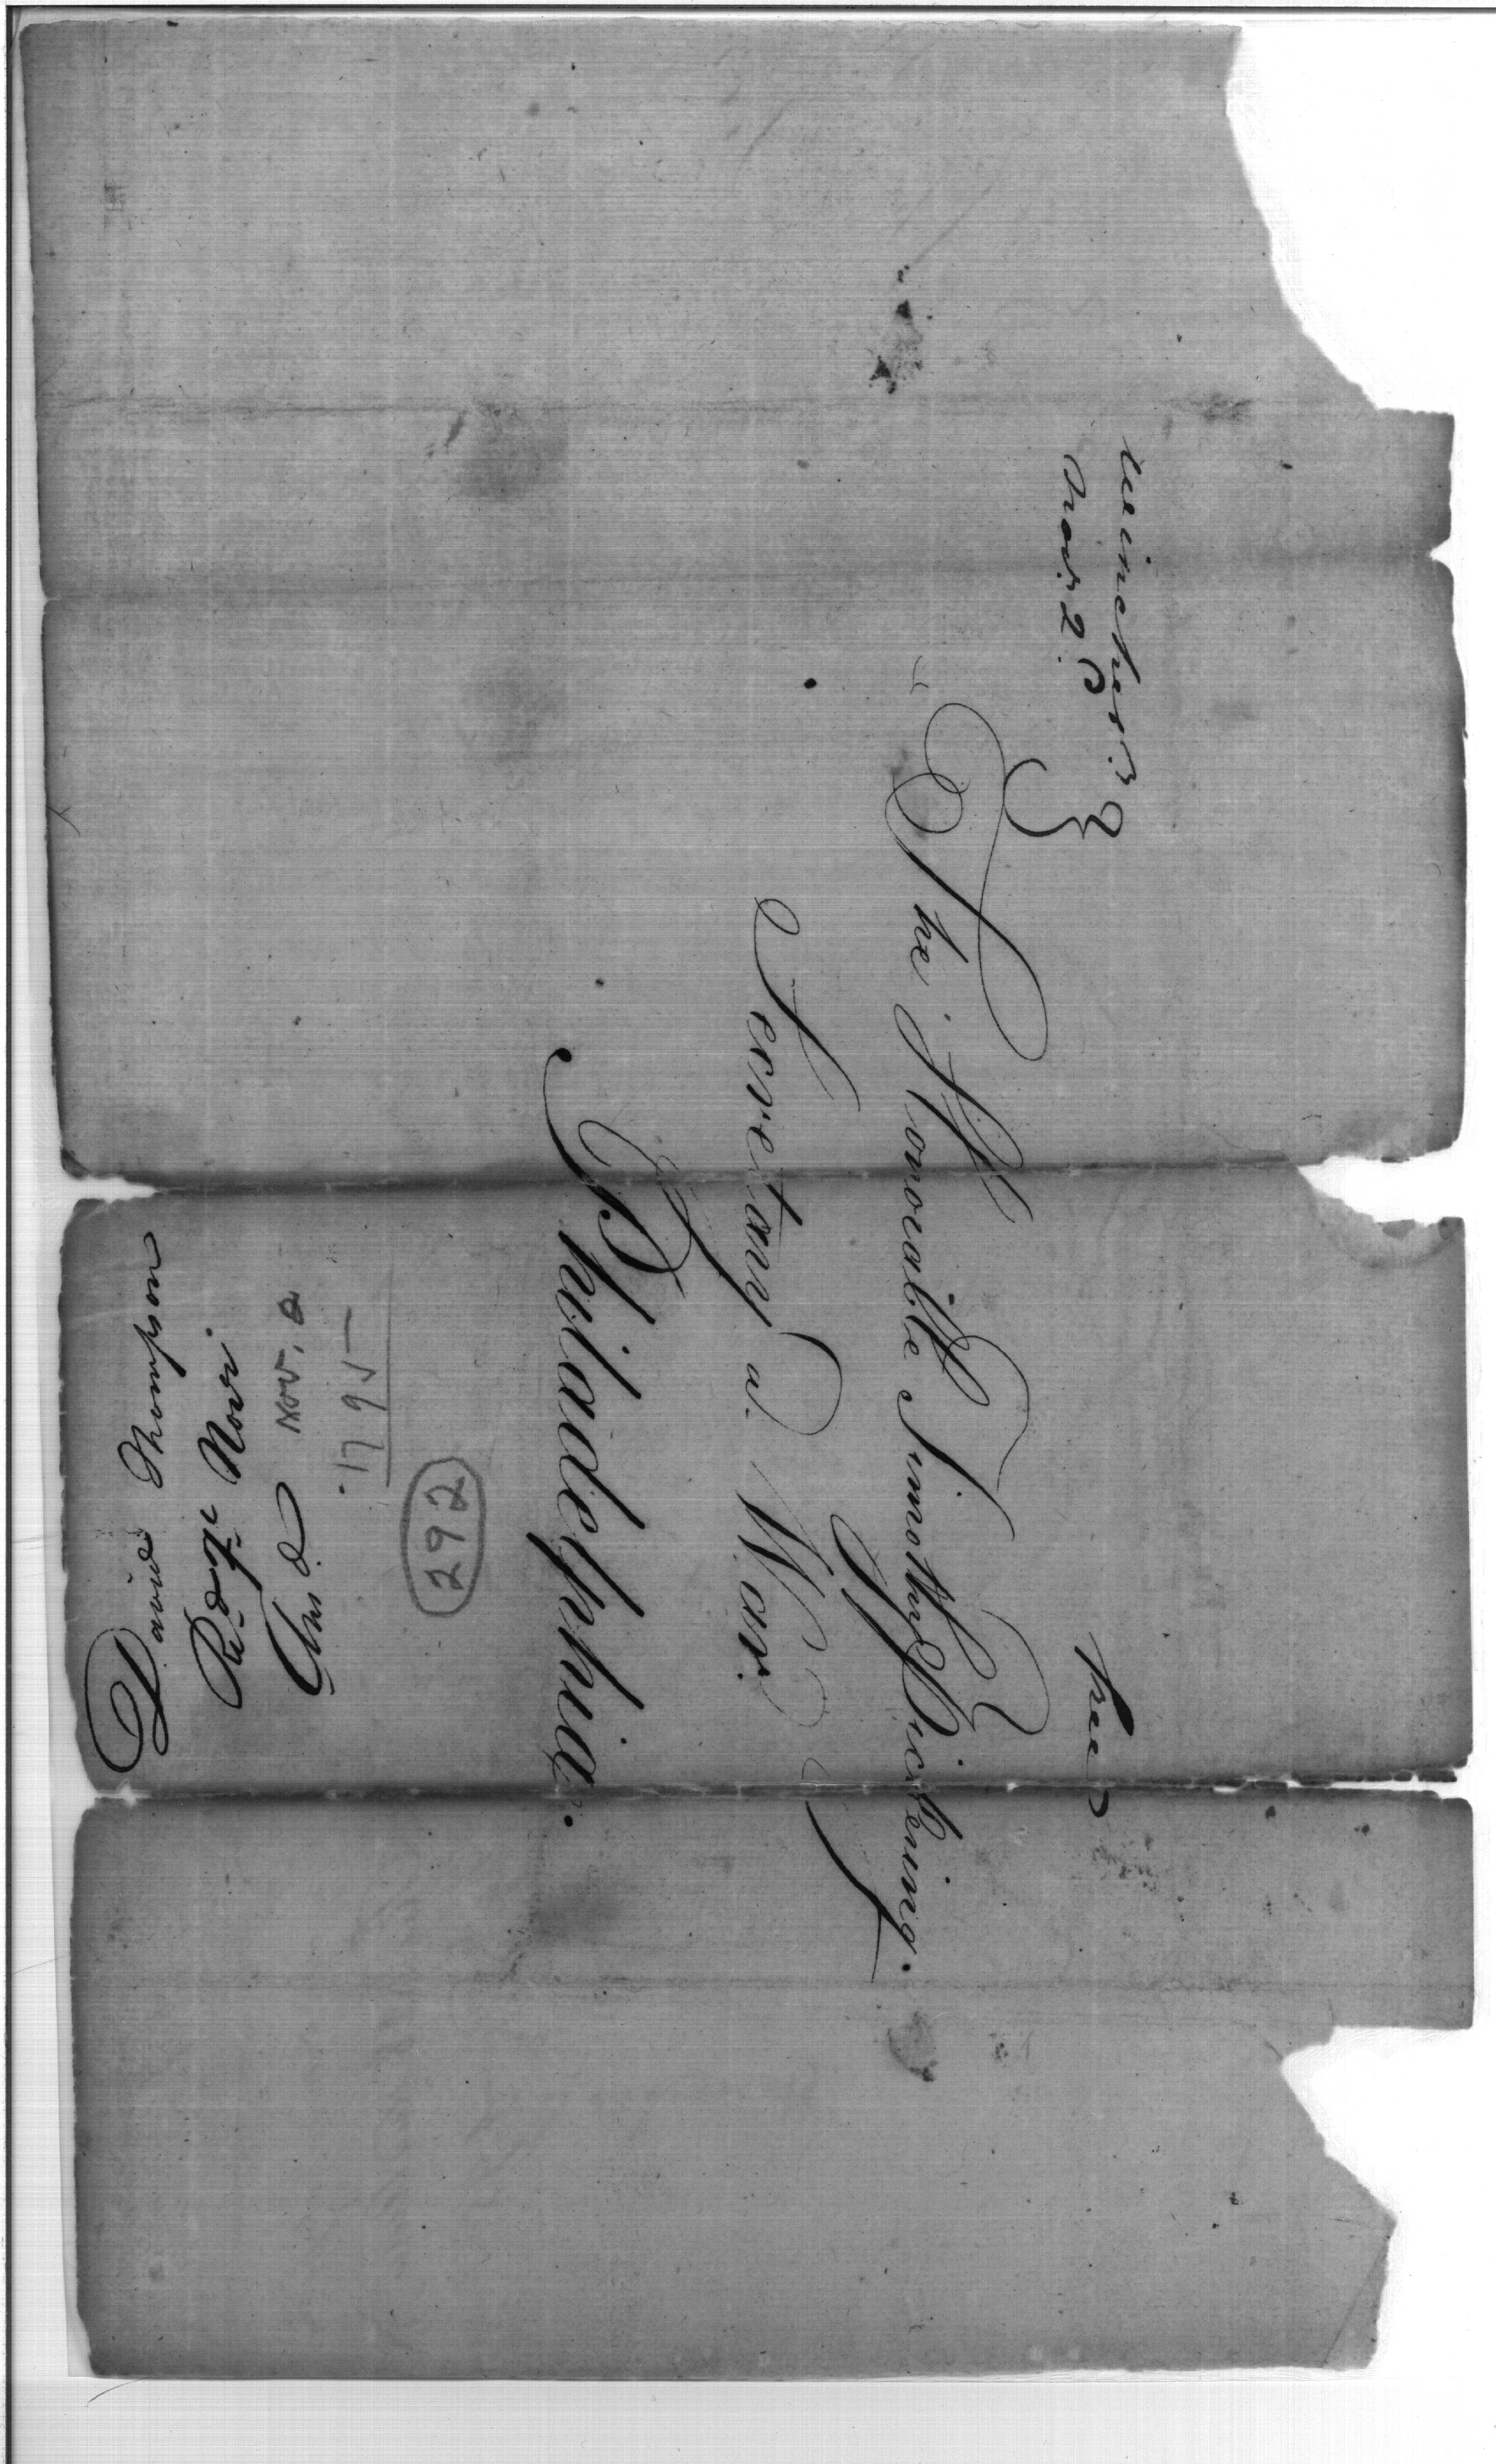 Winchester
Nov. 2
free
The Honorable Timothy Pickering.
Secretary at War
Philadelphia.
David Thompson
Nov.
Nov. 2
1795
292